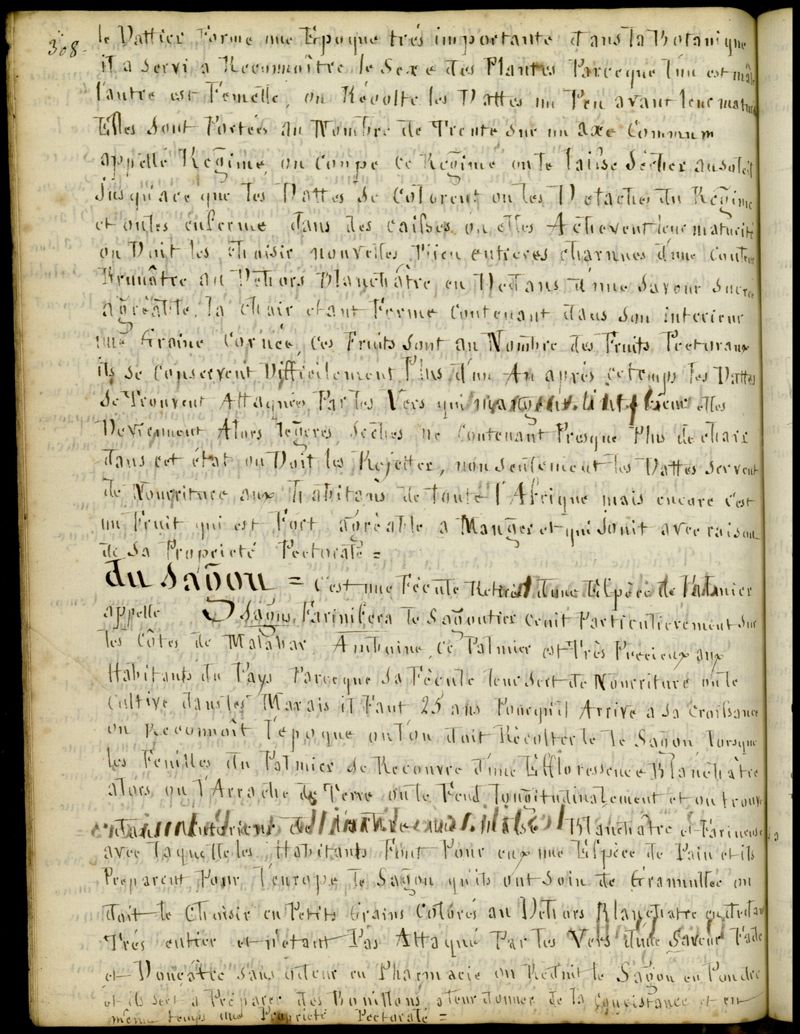 308.
le Dattier Forme une Epoque trés importante dans la Botanique
il a servi a Reconnoître le Sexe des Plantes Parceque l'un est mâle
l'autre est Femelle, on Récolte les Dattes un Peu avant leur maturité
Elles sont Portées au Nombre de Trente sur un axe Commun
appellé Régime, on Coupe ce Régime on le laisse sécher au soleil
Jusqu'ace que les Dattes se Colorent on les Detache du Régime
et on les enferme dans des caisses ou elles Achevent leur maturité
on Doit les choisir nouvelles Bien entieres charnues d'une Couleur
Brunâtre au Dehors Blanchâtre en Dedans d'une Saveur Sucrée
agréable, la chair etant Ferme Contenant dans son interieur
une Graine Cornée, ces Fruits sont au Nombre des Fruits Pectoraux
ils se Conservent Difficilement Plus d'un An aprés ce temps les Dattes
se Trouvent Attaquées Par les Vers qui leur elles
Deviennent Alors legéres, séches ne Contenant Presque Plus de chair
dans cet état on Doit les Rejetter, non seulement les Dattes servent
de Nourriture aux habitans de toute l'Afrique mais encore c'est
un Fruit qui est Fort agréable a Manger et qui Jouit avec raison
de sa Propriété Pectorale =
du Sagou = C'est une Fécule Retirée d'une Espèce de Palmier
appellé Sagus Farinifera le Sagoutier Croit Particulierement sur
les Côtes de Malabar Amboine, ce Palmier est Très Precieux aux
Habitants du Pays Parceque sa Fécule leur Sert de Nourriture on le
Cultive dans les Marais il Faut 25 ans Pourqu'il Arrive a sa Croissance
on Reconnoit l'époque ou l'on doit Récolter le Sagou lorsque
les Feuilles du Palmier se Recouvre d'une Effloressence Blanchâtre
alors on l'Arrache de Terre on le Fend longitudinalement et on trouve
dans Blanchâtre et Farineuse
avec laquelle les Habitants Font Pour eux une Espèce de Pain et ils
Préparent Pour l'europe le Sagou qu'ils ont soin de Granuller on
doit le Choisir en Petits Grains Colorés au Dehors Blanchatre en dedans
Trés entier et n'étant Pas Attaqué Par les Vers d'une Saveur Fade
et Douceâtre sans odeur en Pharmacie on Reduit le Sagou en Poudre
et ils sert a Préparer des Bouillons, a leur donner de la Consistance et en
même temps une Propriété Pectorale =